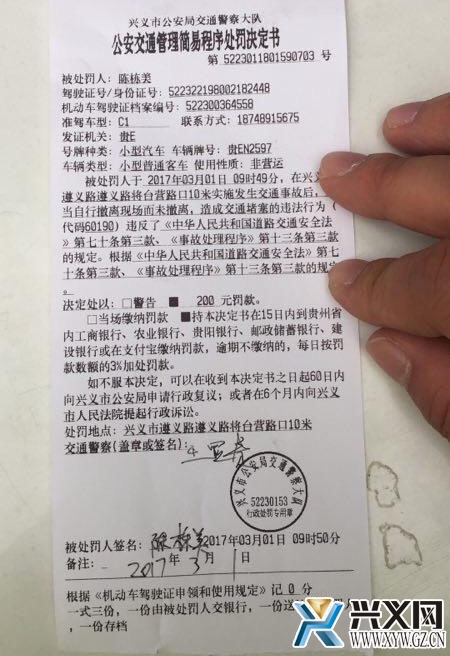 兴义市公安局交通警察大队
公安交通管理简易程序处罚决定书
第 5223011801590703 号
被处罚人：陈栋美
驾驶证号/身份证号：522322198002182448
机动车驾驶证档案编号：522300364558
准驾车型：C1 联系方式：18748915675
发证机关：贵E
号牌种类：小型汽车 车辆牌号：贵EN2597
车辆类型：小型普通客车 使用性质：非营运
被处罚人于 2017年03月01日 09时49分，在兴义
遵义路遵义路将台营路口10米实施发生交通事故后，
当自行撤离现场而未撤离，造成交通堵塞的违法行为（
代码60190）违反了《中华人民共和国道路交通安全法
》第七十条第三款、《事故处理程序》第十三条第三款
的规定。根据《中华人民共和国道路交通安全法》第
七十条第三款、《事故处理程序》第十三条第三款的规定
。
决定处以：□警告 ■ 200 元罚款。
□当场缴纳罚款 ■持本决定书在15日内到贵州省
内工商银行、农业银行、贵阳银行、邮政储蓄银行、建
设银行或在支付宝缴纳罚款，逾期不缴纳的，每日按罚
款数额的3%加处罚款。
如不服本决定，可以在收到本决定书之日起60日内
向兴义市公安局申请行政复议；或者在6个月内向兴义
市人民法院提起行政诉讼。
处罚地点：兴义市遵义路遵义路将台营路口10米
交通警察(盖章或签名)：
兴义市公安局交通警察大队
52230153
行政处罚专用章
被处罚人签名：陈栋美 2017年03月01日 09时50分
备注： 2017年3月1日
根据《机动车驾驶证申领和使用规定》记 0 分
一式三份，一份由被处罚人交银行，一份
，一份存档
兴义网
WWW.XYW.GZ.CN